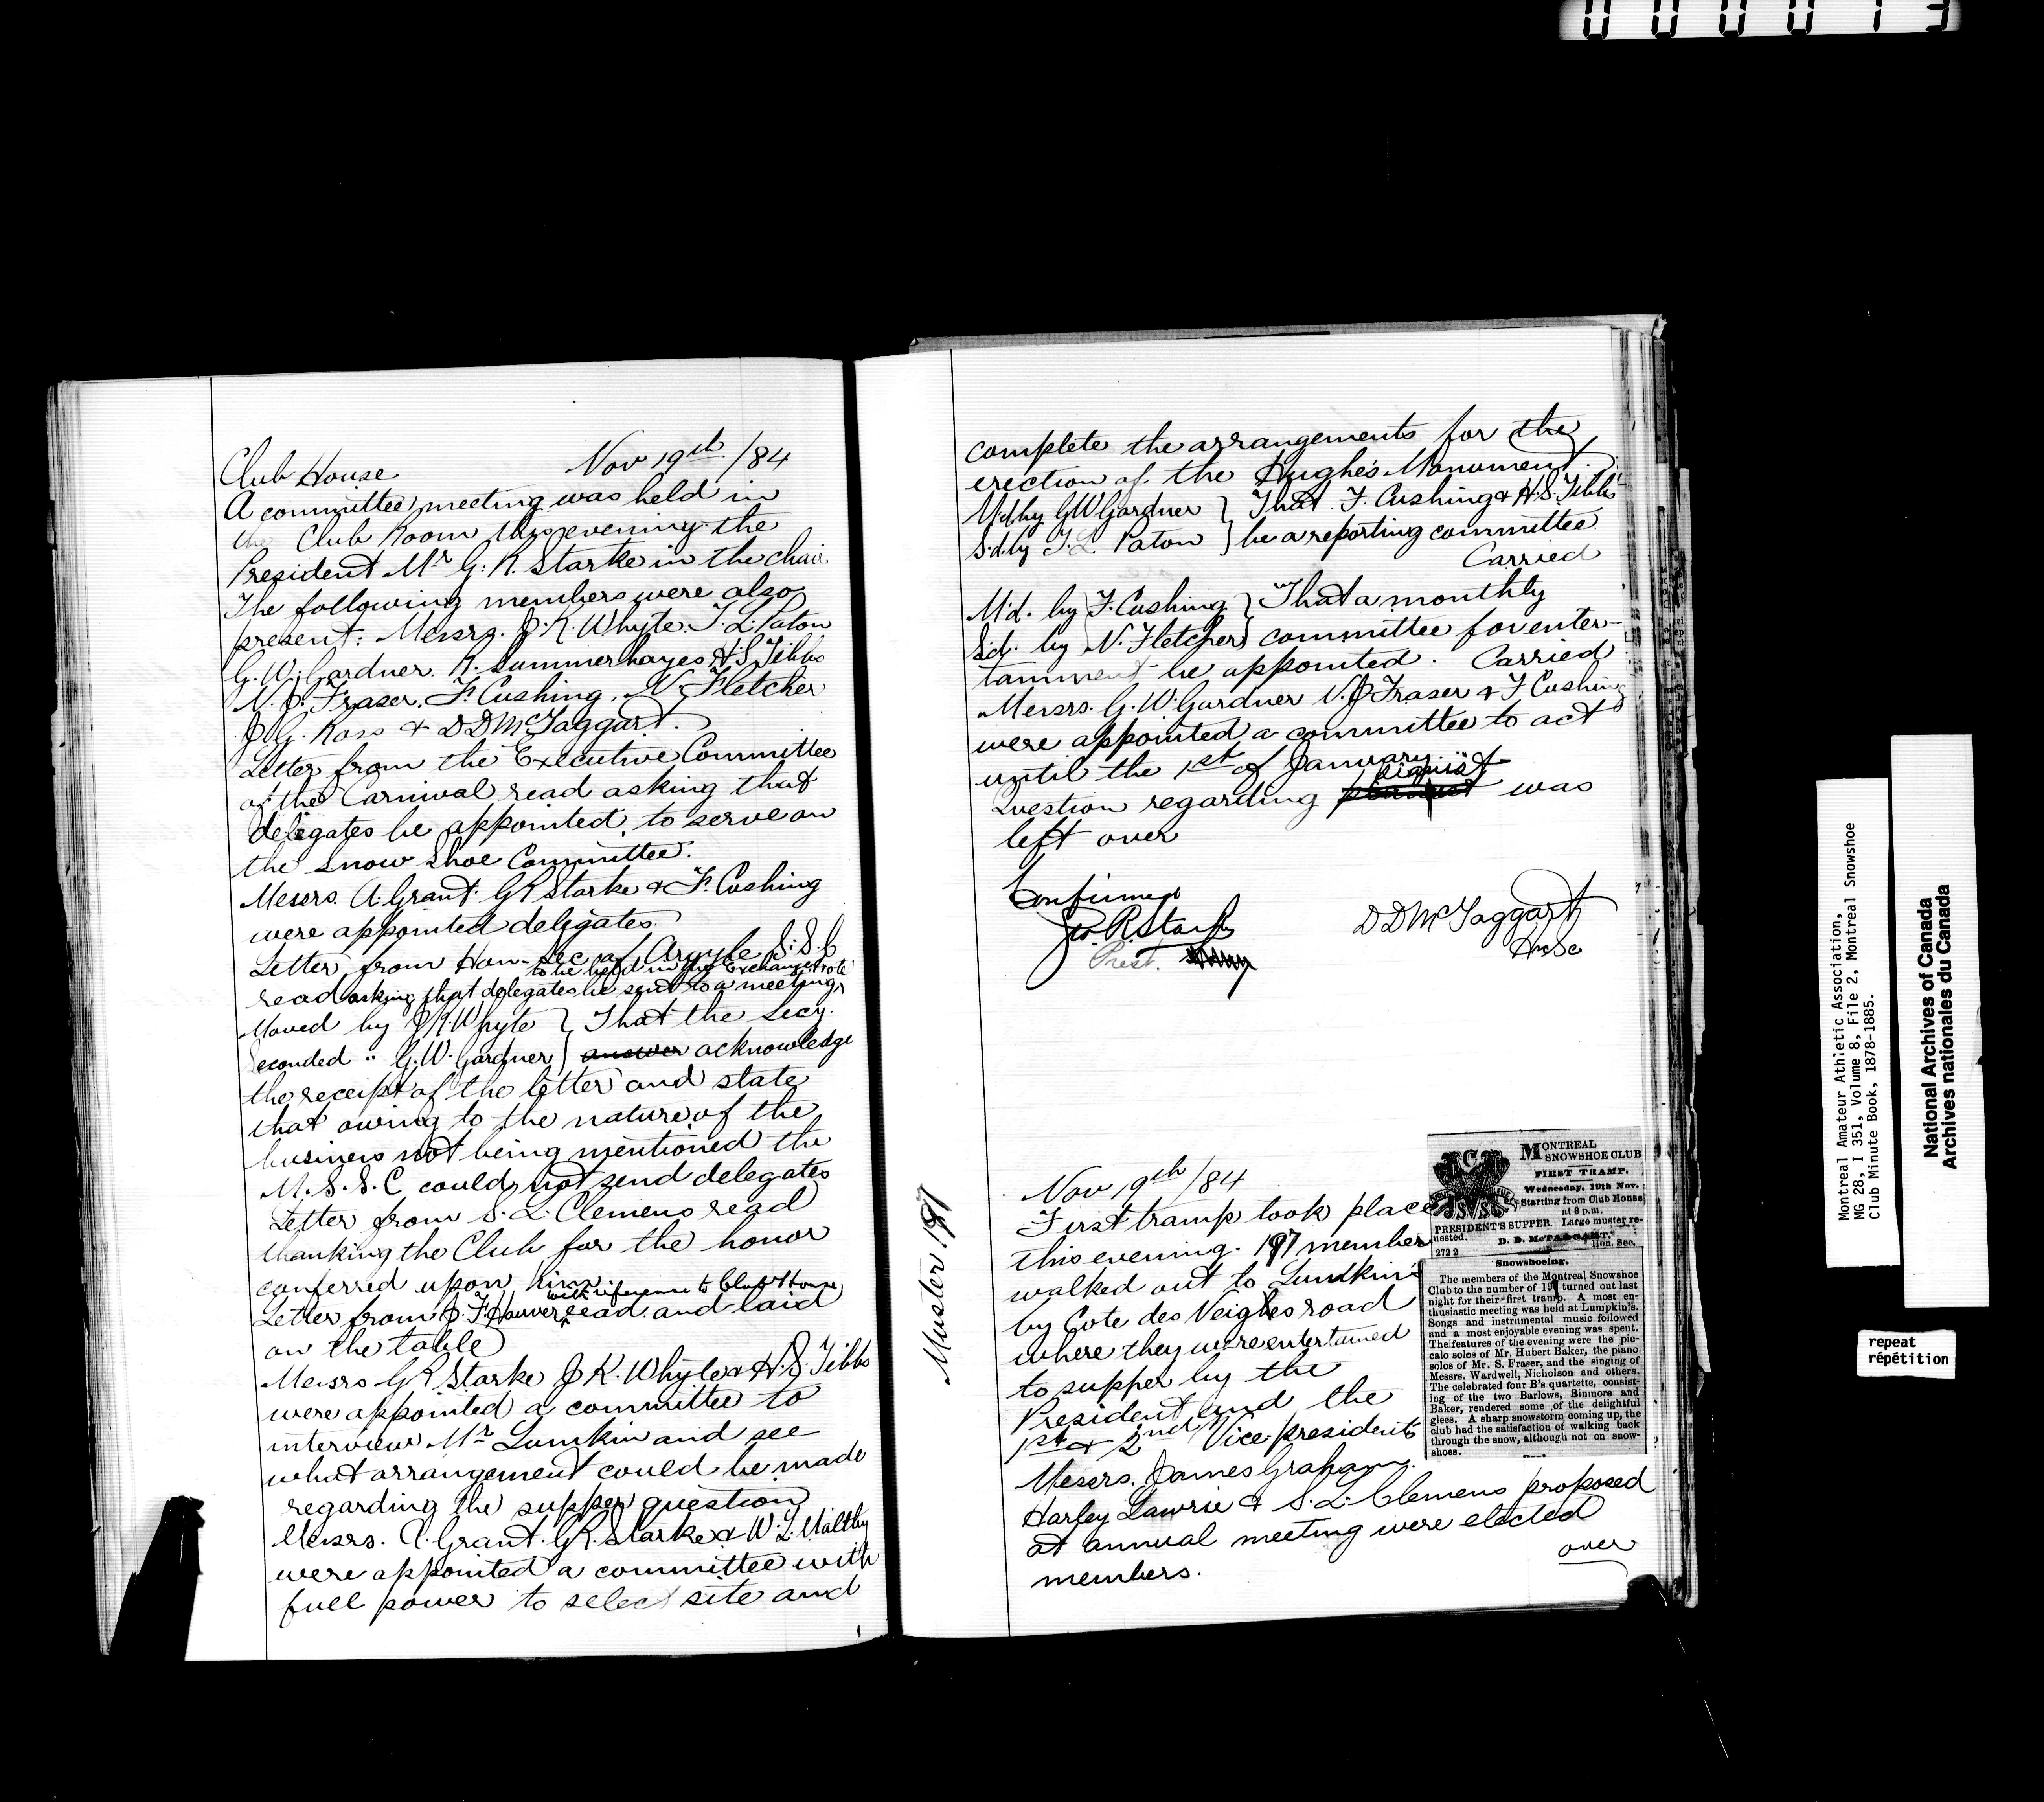 000013
Club House Nov 19th/84
A committee meeting was held in
the Club Room this evening the
President Mr G. R. Starke in the chair
The following members were also
present: Messrs. J. K. Whyte. T. L. Paton
G. W. Gardner. R. Summerhayes H. S. Tibbs
N. J. Fraser. F. Cushing, N Fletcher
J. G. Ross & D D McTaggart.
Letter from the Executive Committee
of the Carnival read asking that
delegates be appointed to serve on
the Snow Shoe Committee.
Messrs. A. Grant. G R Starke & F. Cushing
were appointed delegates.
Letter from Hon-Sec of Argyle S.S.C
to be held in the Exchange
read asking that delegates be sent to a meeting
Moved by J K Whyte } That the Secy.
Seconded " G. W. Gardner } answer acknowledge
the receipt of the letter and state
that owing to the nature of the
business not being mentioned the
M. S. S. C could not send delegates
Letter from S. L. Clemens read
thanking the Club for the honor
conferred upon him
with reference to Club House
Letter from J. F. read and laid
on the table
Messrs G R Starke J K. Whyte & H. S. Tibbs
were appointed a committee to
interview Mr Lumkin and see
what arrangement could be made
regarding the supper question
Messrs. A. Grant. G R. Starke & W. L. Maltby
were appointed a committee with
full power to select site and
complete the arrangements for the
erection of the Hughes Monument.
M'd. by G W Gardner } That F. Cushing & H. S. Tibbs
S'd. by T. L Paton } be a reporting committee
Carried
M'd. by F. Cushing } That a monthly
S'd. by N. Fletcher } committee for enter-
tainment be appointed. Carried
Messrs. G. W. Gardner N. J Fraser & F Cushing
were appointed a committee to act
until the 1st of January
pianist
Question regarding was
left over
Confirmed
Geo. R. Starke
Prest.
D D McTaggart
Hn Sc
Muster 197
Nov 19th/84
First tramp took place
this evening. 197 member
walked out to Lumkin's
by Cote des Neiges road
where they were entertained
to supper by the
President and the
1st & 2nd Vice presidents
Messrs. James Graham.
Harley Lawrie & S. L. Clemens proposed
at annual meeting were elected
members.
over
MONTREAL
SNOWSHOE CLUB
FIRST TRAMP.
Wednesday, 19th Nov.
Starting from Club House
at 8 p.m.
PRESIDENT'S SUPPER. Large muster re-
uested.
D. D. McTAGGART,
Hon. Sec.
272 2
Snowshoeing.
The members of the Montreal Snowshoe
Club to the number of 197 turned out last
night for their first tramp. A most en-
thusiastic meeting was held at Lumpkin's.
Songs and instrumental music followed
and a most enjoyable evening was spent.
The features of the evening were the pic-
calo solos of Mr. Hubert Baker, the piano
solos of Mr. S. Fraser, and the singing of
Messrs. Wardwell, Nicholson and others.
The celebrated four B's quartette, consist-
ing of the two Barlows, Binmore and
Baker, rendered some of the delightful
glees. A sharp snowstorm coming up, the
club had the satisfaction of walking back
through the snow, although not on snow-
shoes.
Montreal Amateur Athletic Association,
MG 28, I 351, Volume 8, File 2, Montreal Snowshoe
Club Minute Book, 1878-1885.
National Archives of Canada
Archives nationales du Canada
repeat
répétition